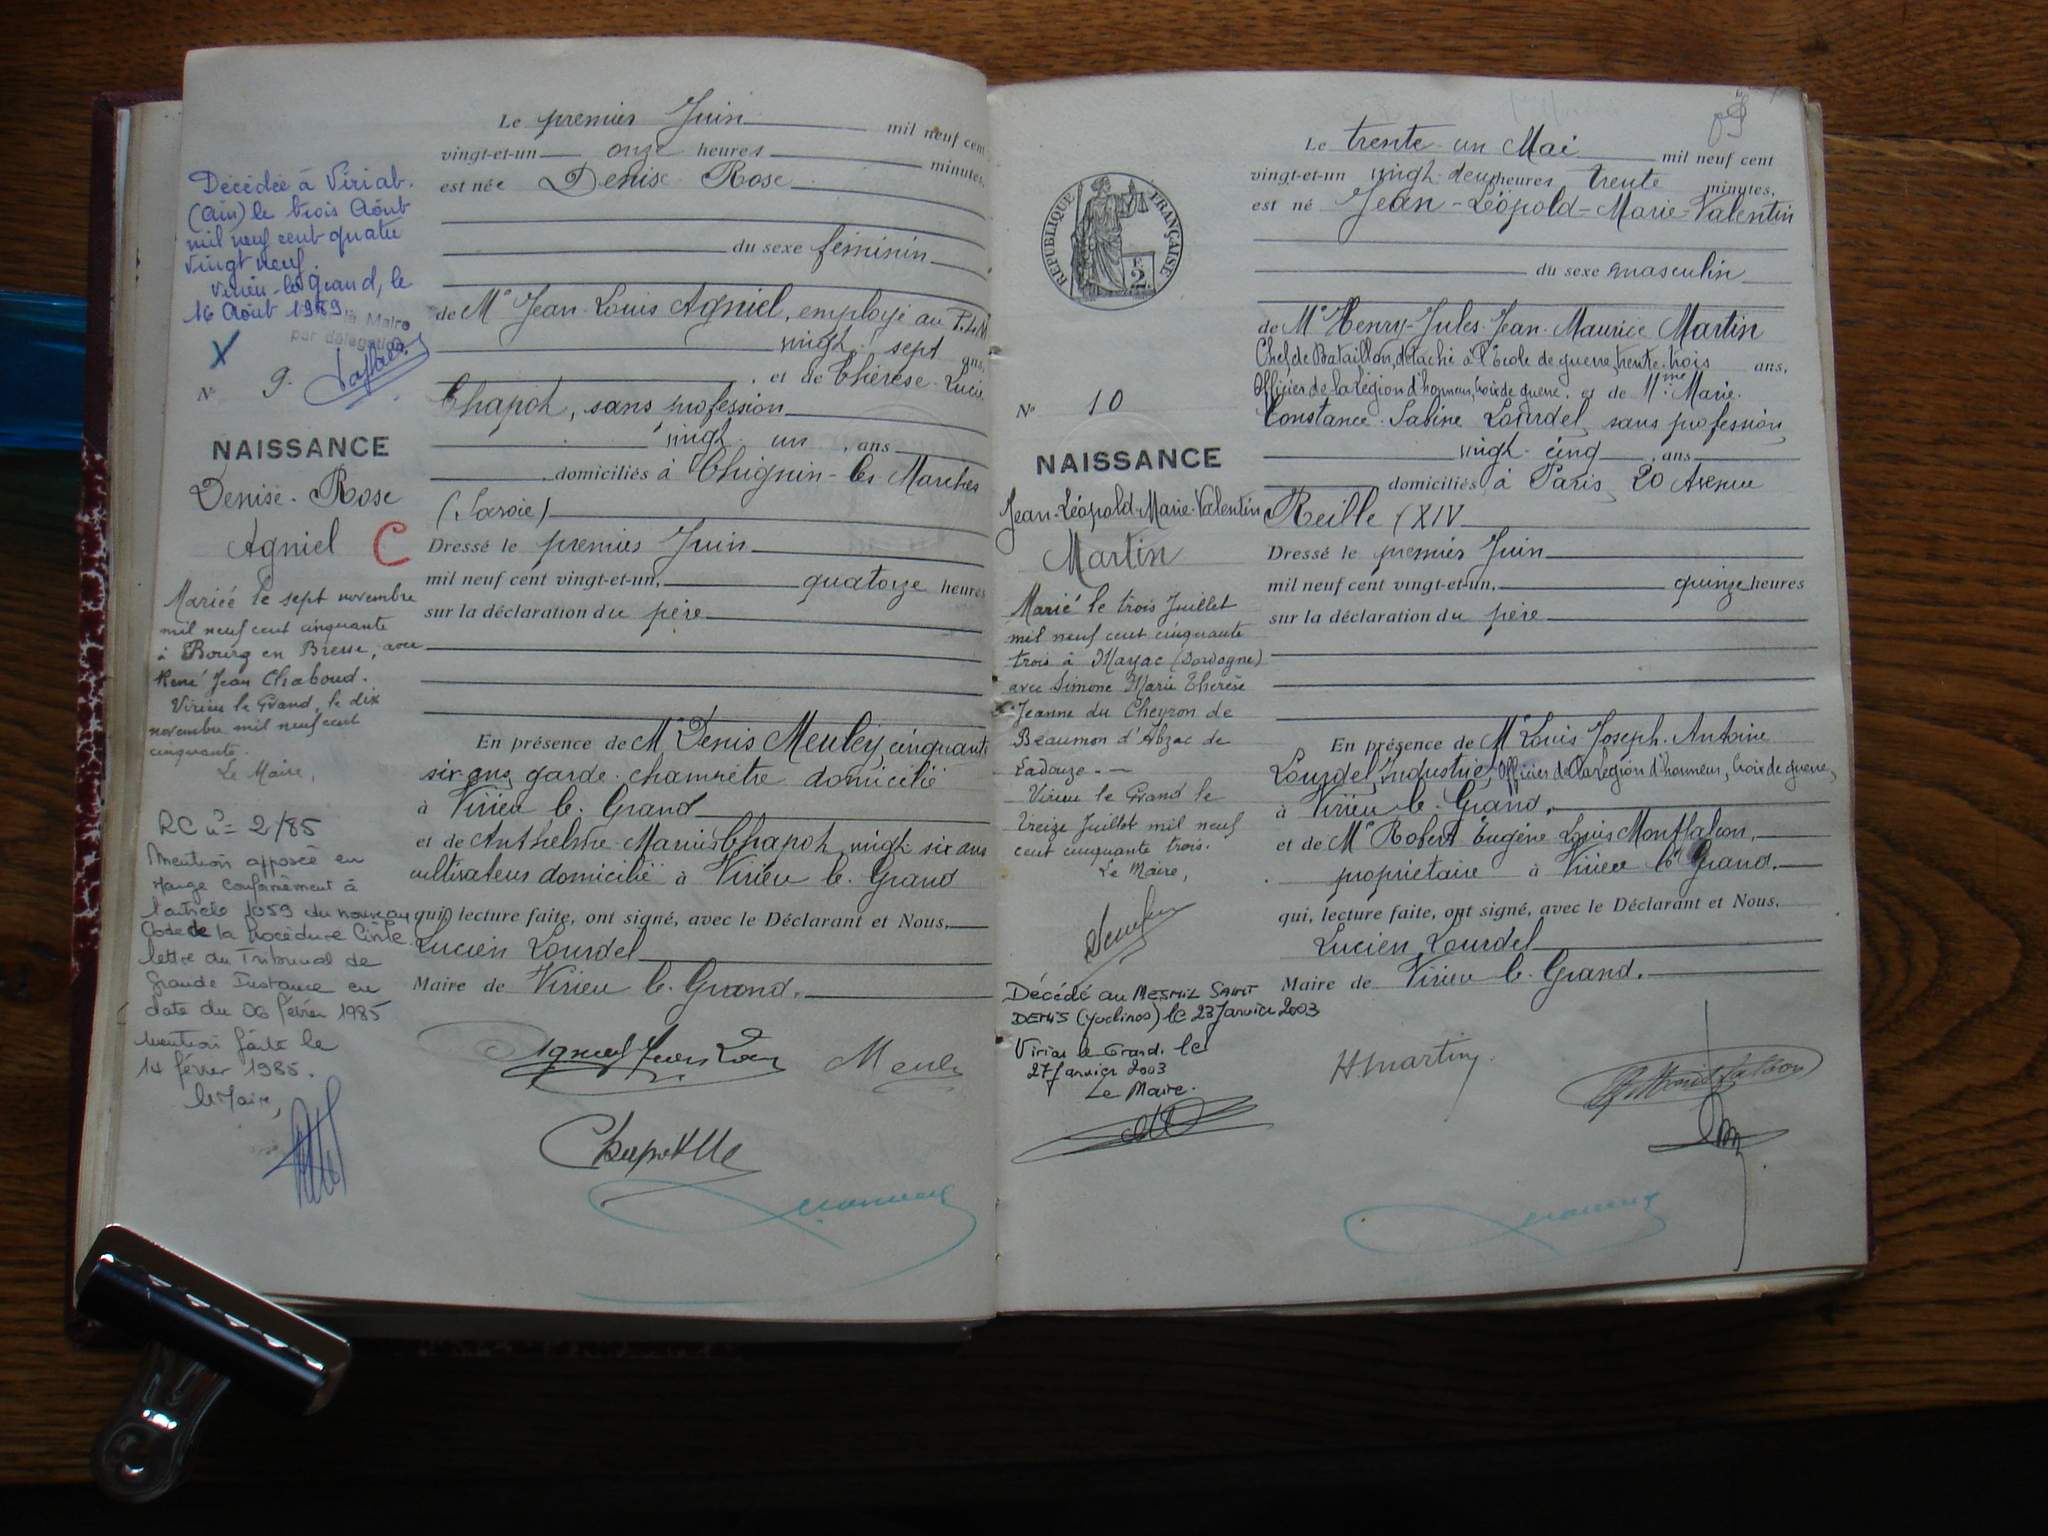 Décédée à Viriat.
(Ain) le trois Août
mil neuf cent quatre
vingt neuf.
Virieu-le-Grand, le
16 Août 1989
le Maire
par délégation
N° 9.
NAISSANCE
Denise-Rose
Agniel C
Mariée le sept novembre
mil neuf cent cinquante
à Bourg en Bresse, avec
René Jean Chaboud.
Virieu le Grand, le dix
novembre mil neuf cent
cinquante.
Le Maire,
RC n° = 2/85
Mention apposée en
marge conformément à
l'article 1059 du nouveau
Code de la Procédure Civile
lettre du Tribunal de
Grande Instance en
date du 06 février 1985
Mention faite le
14 février 1985.
Le Maire,
Le premier Juin mil neuf cent
vingt-et-un onze heures minutes,
est née Denise Rose
du sexe féminin
de Mr Jean-Louis Agniel, employé au P.L.M
vingt-sept ans,
et de Thérèse-Lucie
Chapot, sans profession
vingt-un, ans
domiciliés à Chignin-les Marches
(Savoie)
Dressé le premier Juin
mil neuf cent vingt-et-un, quatorze heures
sur la déclaration du père
En présence de Mr Denis Meuley, cinquante
six ans garde-champêtre domicilié
à Virieu-le-Grand
et de Anthelme-Marius Chapot, vingt-six ans
cultivateur domicilié à Virieu-le-Grand
qui, lecture faite, ont signé, avec le Déclarant et Nous,
Lucien Lourdel
Maire de Virieu-le-Grand.
RÉPUBLIQUE FRANÇAISE
2
N° 10
NAISSANCE
Jean-Léopold-Marie-Valentin
Martin
Marié le trois Juillet
mil neuf cent cinquante
trois à Mayac (Dordogne)
avec Simone Marie Thérèse
Jeanne du Cheyron de
Beaumon d'Abzac de
Ladouze. —
Virieu le Grand le
treize Juillet mil neuf
cent cinquante trois.
Le Maire,
Décédé au MESNIL SAINT
DENIS (Yvelines) le 23 Janvier 2003
Virieu le Grand, le
27 Janvier 2003
Le Maire.
Le trente-un Mai mil neuf cent
vingt-et-un vingt-deux heures trente minutes,
est né Jean-Léopold-Marie-Valentin
du sexe masculin
de Mr Henry-Jules-Jean-Maurice Martin
Chef de Bataillon, détaché à l'Ecole de guerre, trente-trois ans,
Officier de la Légion d'honneur, croix de guerre. et de Mme Marie-
Constance-Sabine Lourdel, sans profession,
vingt-cinq, ans
domiciliés à Paris, 20 Avenue
Reille (XIV
Dressé le premier Juin
mil neuf cent vingt-et-un, quinze heures
sur la déclaration du père
En présence de Mr Louis-Joseph-Antoine
Lourdel, Industriel, Officier de la Légion d'honneur, Croix de guerre,
à Virieu-le-Grand,
et de Mr Robert Eugène Louis Montfalcon,
propriétaire à Virieu-le-Grand.
qui, lecture faite, ont signé, avec le Déclarant et Nous,
Lucien Lourdel
Maire de Virieu-le-Grand.
Meuley
HMartin